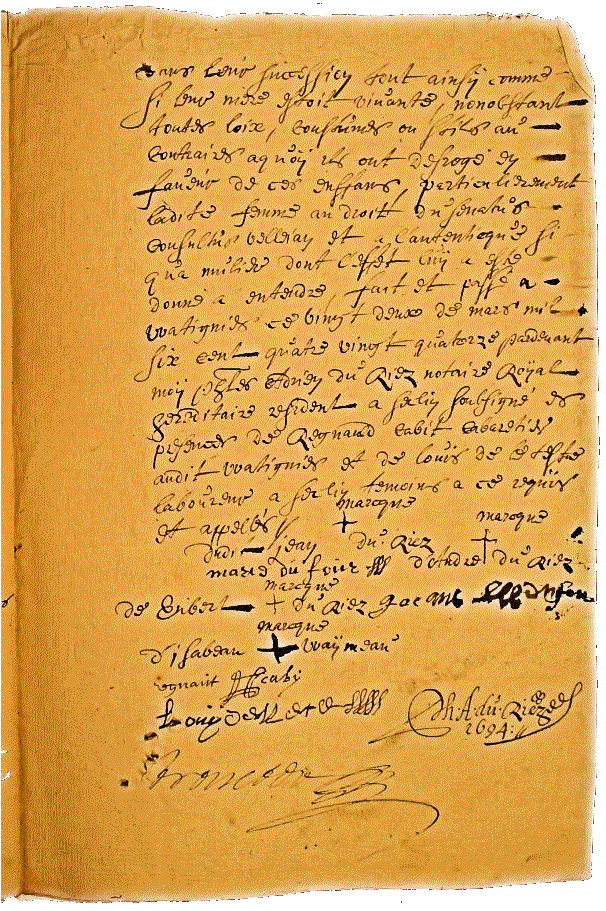 dans leur succession tout ainsÿ comme
si leur mere estoit vivante, nonobstant
toutes loix, coustumes ou stils au
contraires aquoÿ ils ont desrogé en
faveur de ces enffans, particulierement
ladite femme au droitt du senatus
consultus velleian et a l'autenticque si
qua mulier dont l'effet luy a esté
donné a entendre fait et passé a
Watignies ce vingt deux de mars mil
six cent quatre vingt quatorze pardevant
moÿ Adrien du Riez notaire Roÿal
hereditaire resident a seclin soubsigné es
presences de Regnaud cabit cabaretier
audit Watignies et de louis de
laboureur a seclin temoins a ce requis
et appellés
marcque
marcque
dudit jean + du Riez
marie du four d'Andre + du Riez
marcque
de Gibert + du Riez
marcque
d'isabeau + Waÿmeau
Louÿ
du Riez
1694